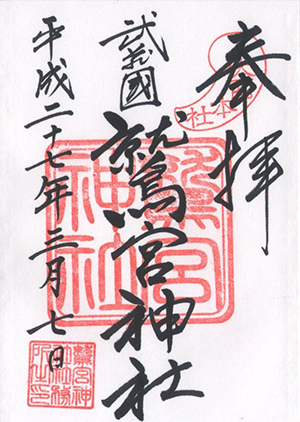 奉拝
武蔵國
鷲宮神社
平成二十七年三月七日
鷲宮
神社
本社
鷲宮神
社務
所之印